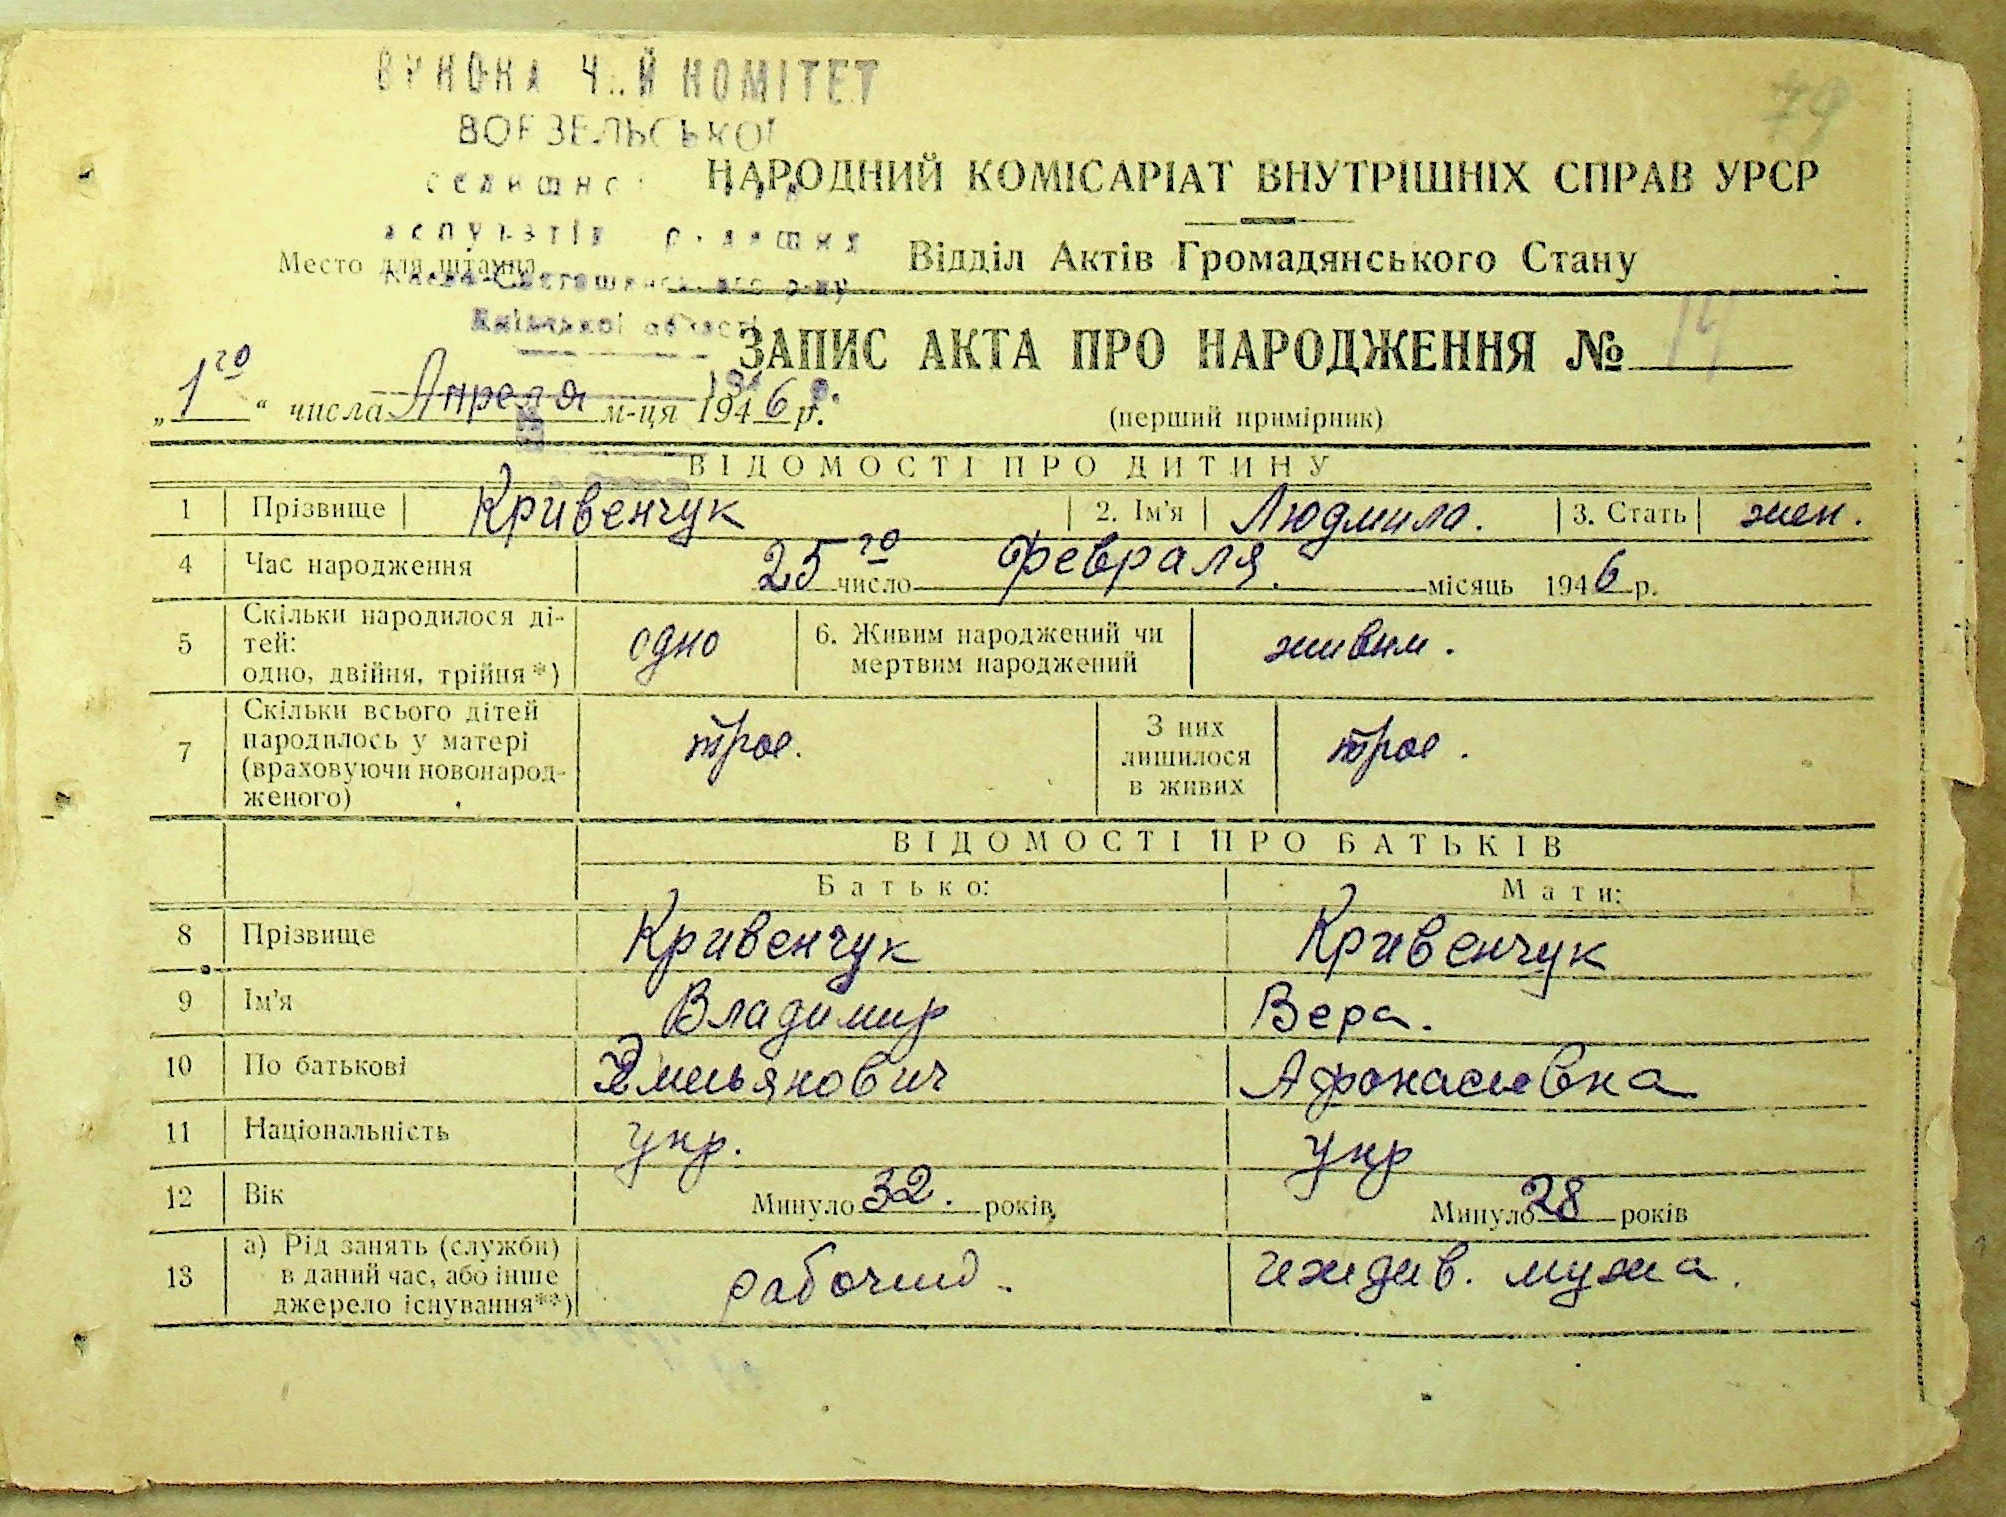 79
НОМІТЕТ
ВОРЗЕЛЬСЬКОЇ
НАРОДНИЙ КОМІСАРІАТ ВНУТРІШНІХ СПРАВ УРСР
Место для штампа
Відділ Актів Громадянського Стану
Київської області
ЗАПИС АКТА ПРО НАРОДЖЕННЯ № 14
„1го“ числа Апреля м-ця 1946 р.
(перший примірник)
ВІДОМОСТІ ПРО ДИТИНУ
1 Прізвище Кривенчук 2. Ім'я Людмила. 3. Стать жен.
4 Час народження 25го число февраля. місяць 1946 р.
5 Скільки народилося ді-
тей:
одно, двійня, трійня*)
одно
6. Живим народжений чи
мертвим народжений
живим.
7 Скільки всього дітей
народилось у матері
(враховуючи новонарод-
женого)
трое.
З них
лишилося
в живих
трое.
ВІДОМОСТІ ПРО БАТЬКІВ
Батько: Мати:
8 Прізвище Кривенчук Кривенчук
9 Ім'я Владимир Вера.
10 По батькові Емельянович Афонасиевна
11 Національність укр. укр
12 Вік Минуло 32. років Минуло 28 років
13 а) Рід занять (служби)
в даний час, або інше
джерело існування**)
рабочий. иждив. мужа.